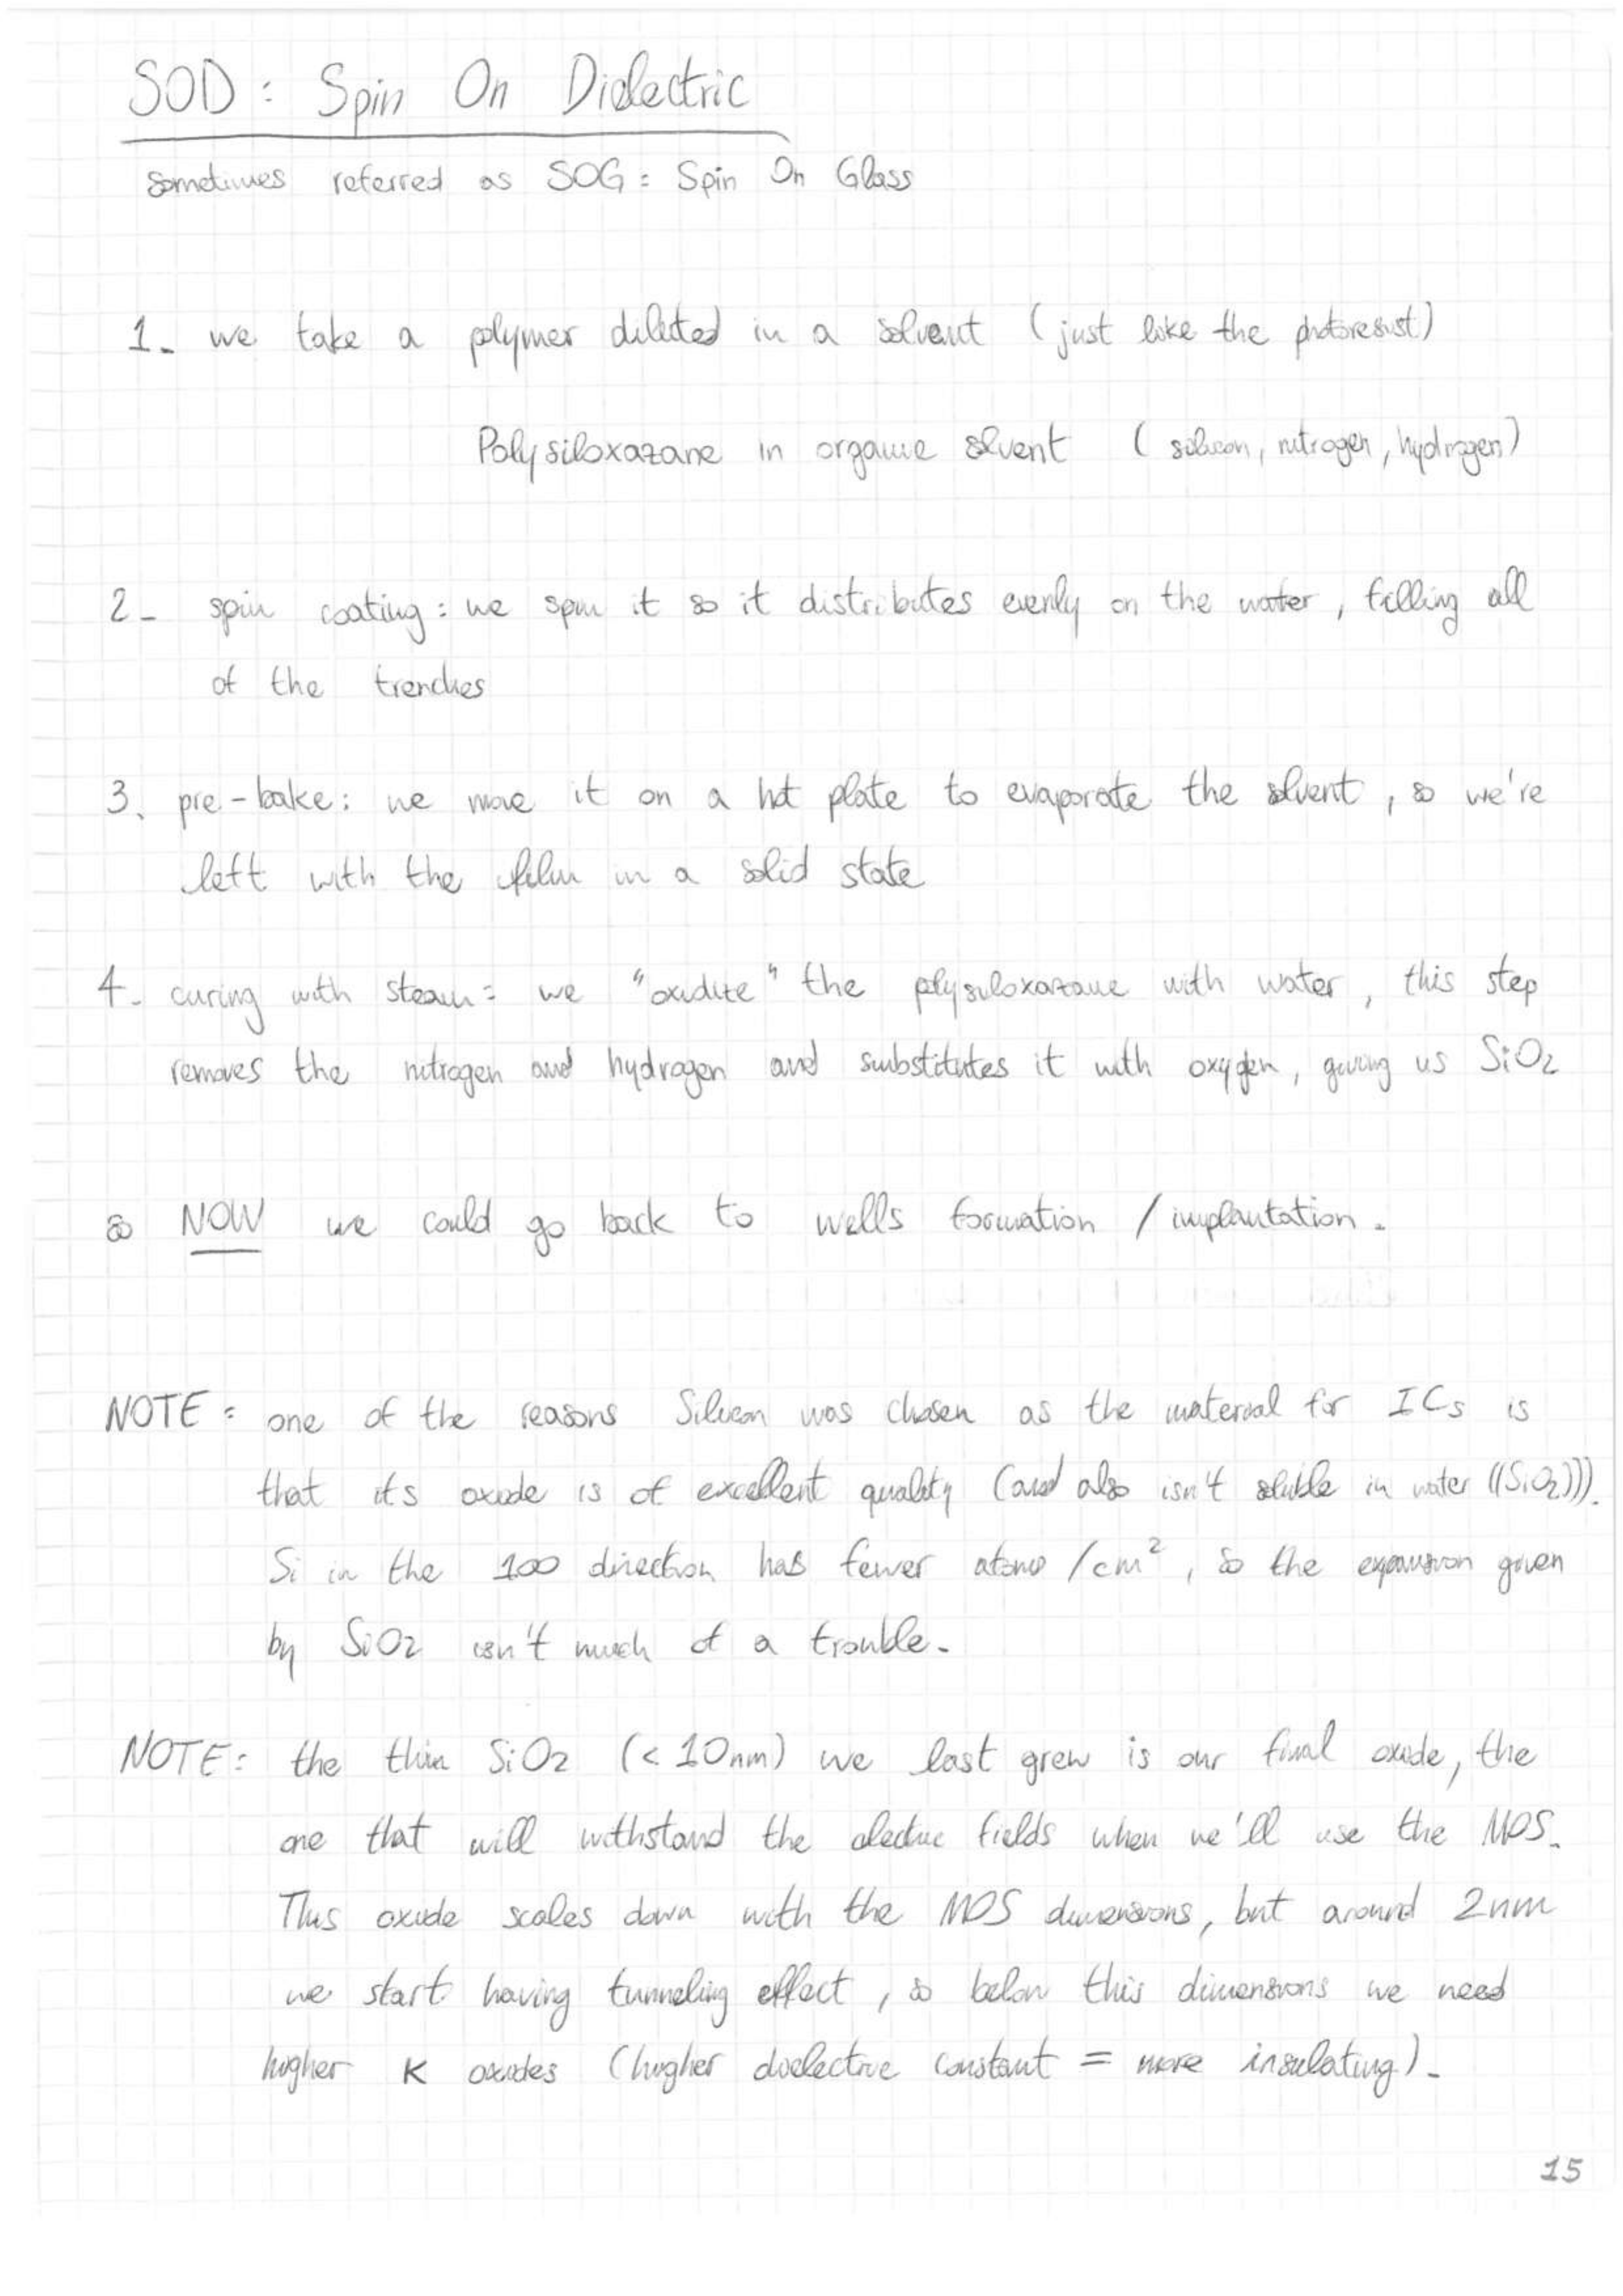 SOD : Spin On Dielectric
sometimes referred as SOG = Spin On Glass
1- we take a polymer diluted in a solvent (just like the photoresist)
Polysiloxazane in organic solvent (silicon, nitrogen, hydrogen)
2- spin coating: we spin it so it distributes evenly on the water, filling all
of the trenches
3. pre-bake: we move it on a hot plate to evaporate the solvent, so we're
left with the film in a solid state
4- curing with steam: we "oxidize" the polysiloxazane with water, this step
removes the nitrogen and hydrogen and substitutes it with oxygen, giving us SiO2
so NOW we could go back to wells formation / implantation.
NOTE: one of the reasons Silicon was chosen as the material for ICs is
that its oxide is of excellent quality (and also isn't soluble in water ((SiO2))).
Si in the 100 direction has fewer atoms /cm², so the expansion given
by SiO2 isn't much of a trouble.
NOTE: the thin SiO2 (< 10nm) we last grew is our final oxide, the
one that will withstand the electric fields when we'll use the MOS.
This oxide scales down with the MOS dimensions, but around 2nm
we start having tunneling effect, so below this dimensions we need
higher K oxides (higher dielectric constant = more insulating).
15